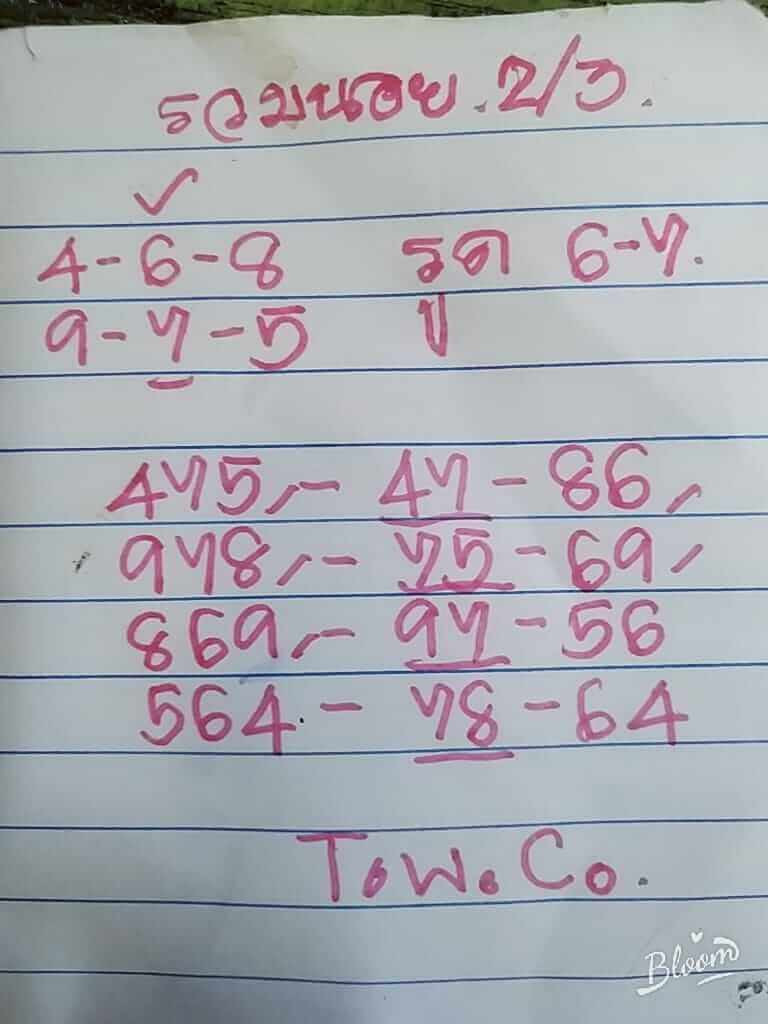 รวมหอย.2/3.
4-6-8 รูด 6-7.
9-7-5 ปู
475,- 47-86,
978,- 75-69,
869,- 97-56
564.- 78-64
T.W.Co.
Bloom